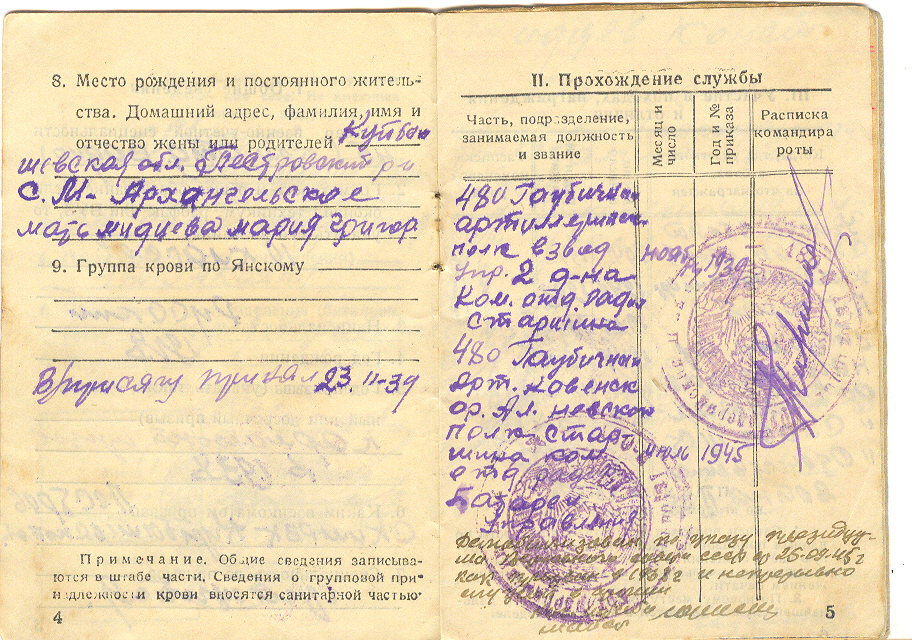 8. Место рождения и постоянного житель-
ства. Домашний адрес, фамилия, имя и
отчество жены или родителей Куйбы
шевская обл.
с. М-Архангельское
мать мария григор
9. Группа крови по Янскому
Примечание. Общие сведения записыва-
ются в штабе части. Сведения о групповой при-
надлежности крови вносятся санитарной частью.
4
II. Прохождение службы
Часть, подразделение,
занимаемая должность
и звание
Месяц и
число
Год и №
приказа
Расписка
командира
роты
480 Гаубичный
артиллерийск
полк взвод ноябрь 1939
упр. 2 д-на
ком. отд. радио
старшина
480 Гаубичный
арт. Ковенск
ор. Ал. Невского
полк. Стар
шина ком. июль 1945
отд. рад
Батареи
Управления
В/присягу принял 23.II-39
Демобилизован по указу президиу-
ма СССР 25-09-45г
и непрерывно
5